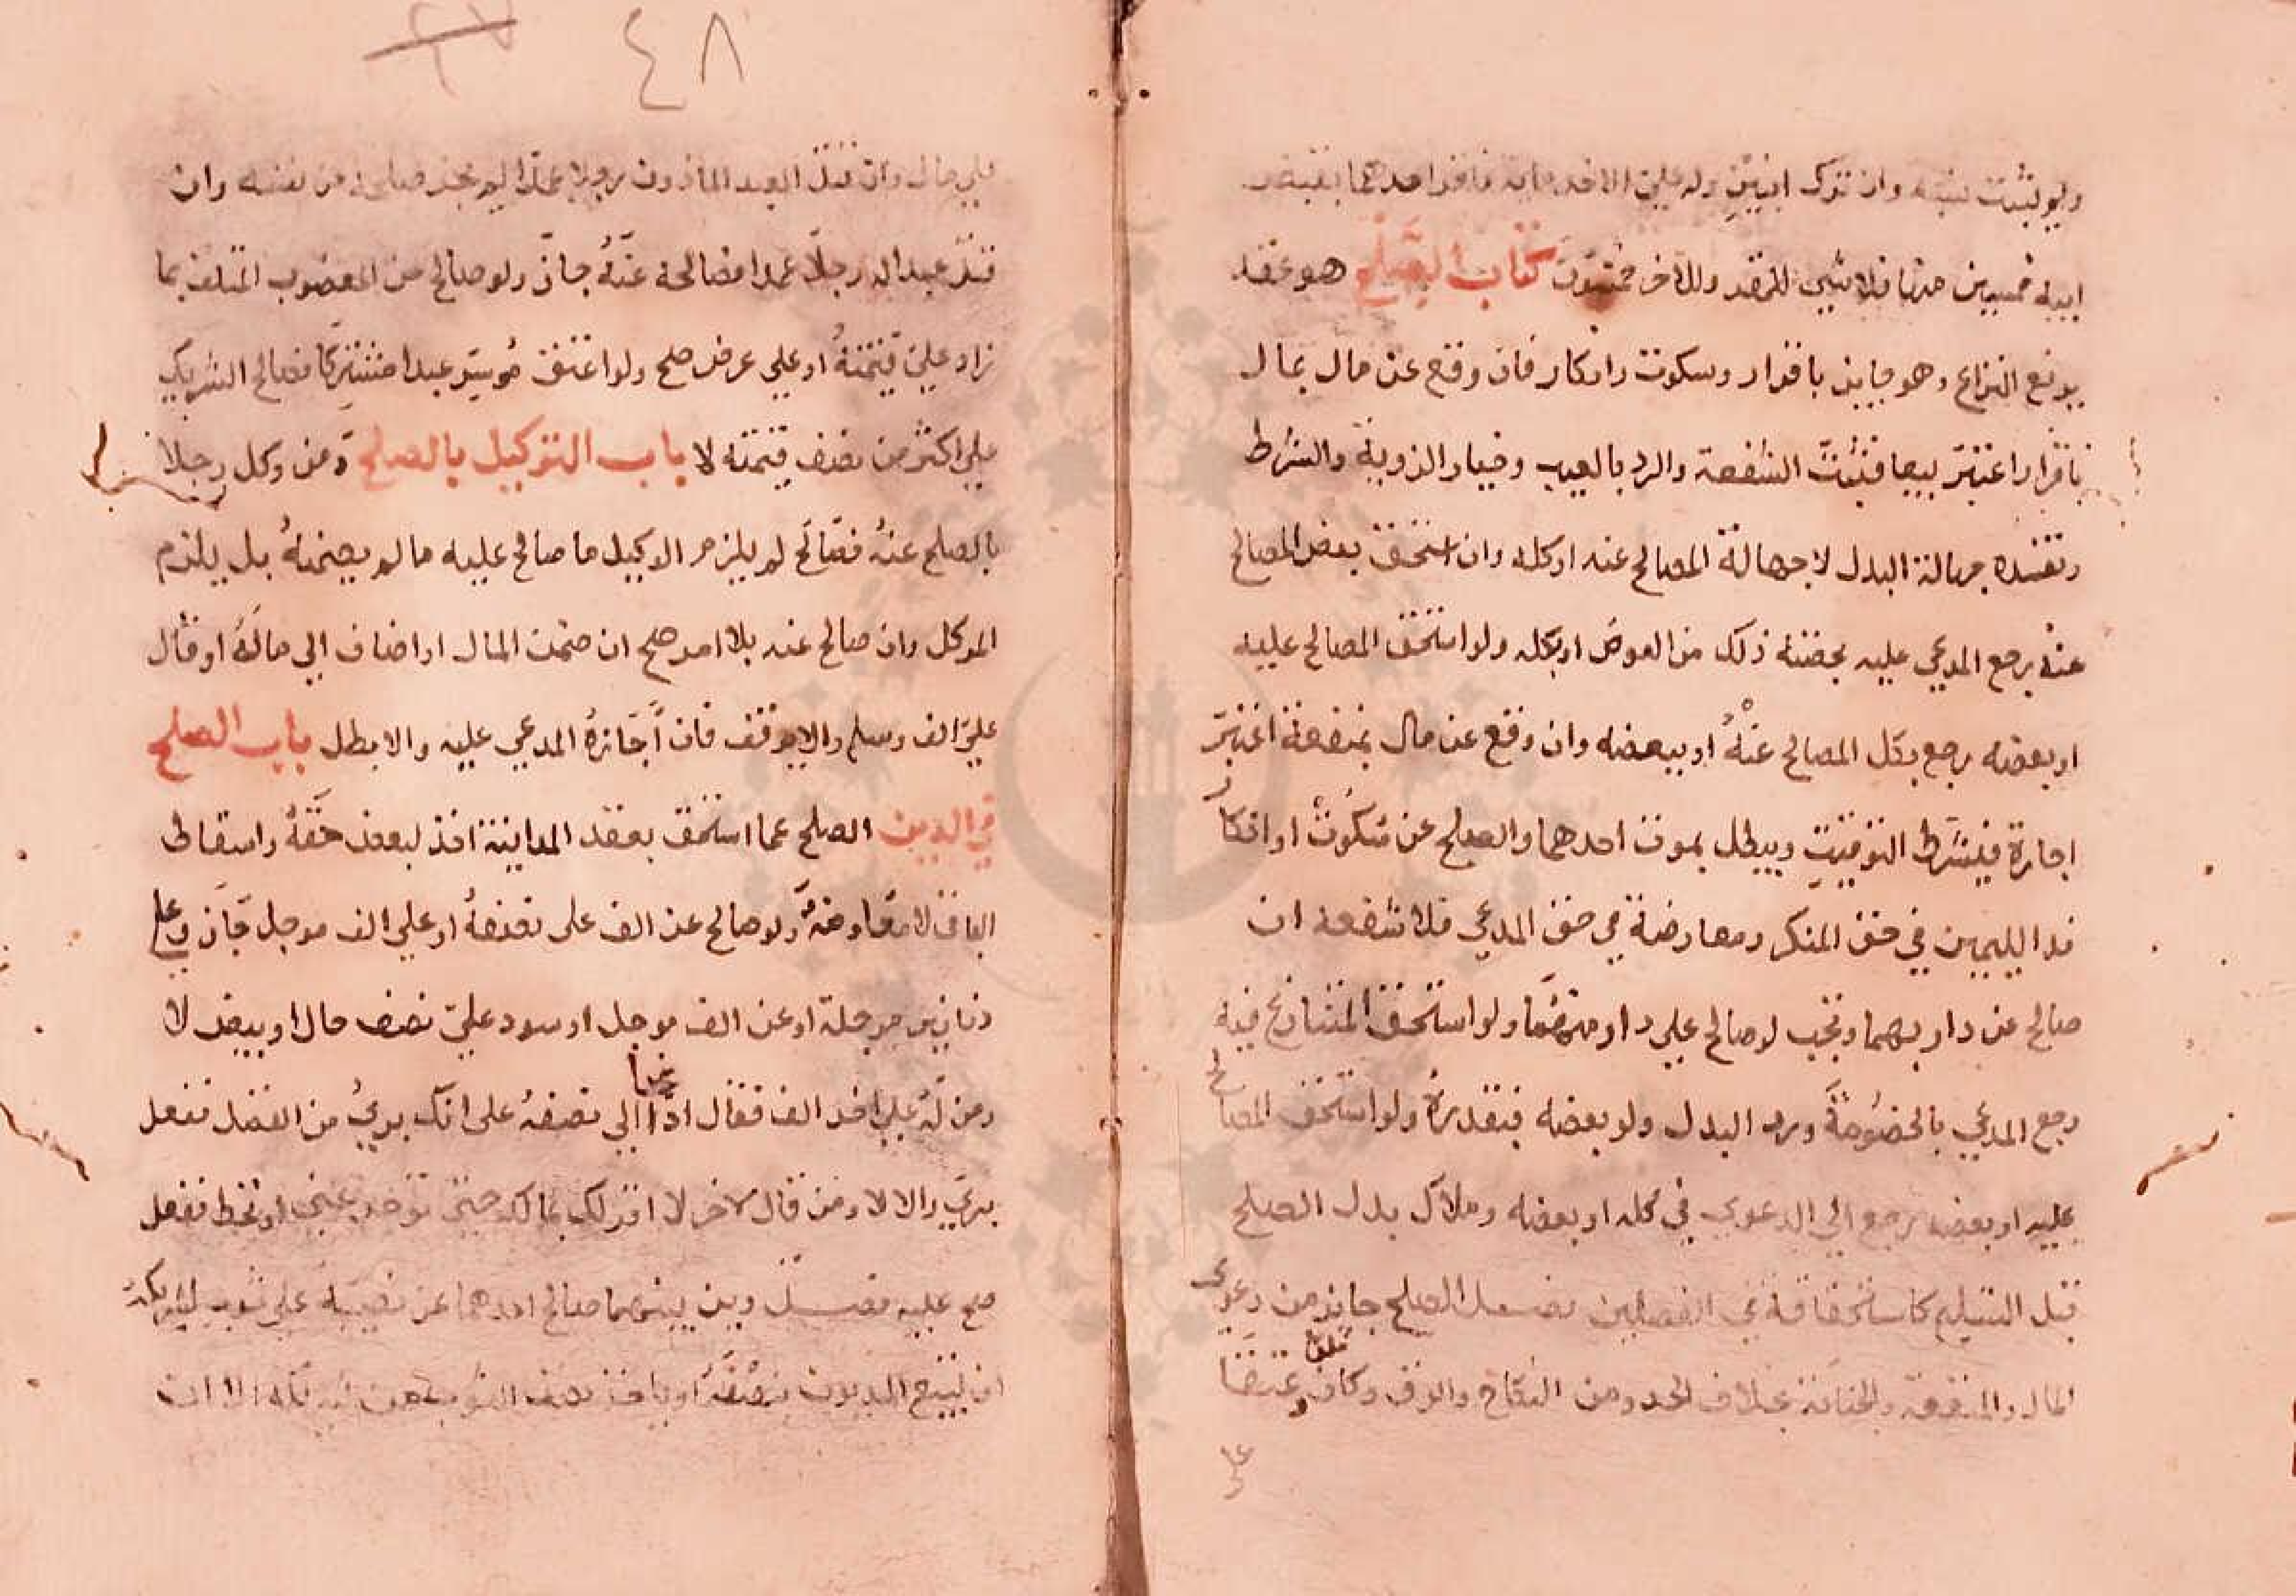 ٤٨
ولم يثبت نسبه وان ترك ابنين وله علي اخر مائة فاقر احدهما بقبض
ابيه خمسين منها فلا شي للمقر وللاخر خمسون كتاب الصلح هو عقد
يرفع النزاع وهو جايز باقرار وسكوت وانكار فان وقع عن مال بمال
باقرار اعتبر بيعا فيثبت الشفعة والرد بالعيب وخيار الروية والشرط
وتفسده جهالة البدل لا جهالة المصالح عنه او كله وان استحق بعض المصالح
عنه يرجع المدعي عليه بحصته ذلك من العوض او بكله ولو استحق المصالح عليه
او بعضه رجع بكل المصالح عنه او ببعضه وان وقع عن مال بمنفعة اعتبر
اجارة فيشرط التوقيت ويبطل بموت احدهما والصلح عن سكوت او انكار
فدا لليمين في حق المنكر ومعارضة في حق المدعي فلا شفعة ان
صالح عن دار بهما وتجب لو صالح علي دار منهما ولو استحق المتنازع فيه
رجع المدعي بالخصومة ورد البدل ولو بعضه فبقدره ولو استحق المصالح
عليه او بعضه رجع الي الدعوي في كله او بعضه وهلاك بدل الصلح
قبل التسليم كاستحقاقه في الفصلين فصل الصلح جايز من دعوي
المال والمنفعة والجناية بخلاف الحد ومن النكاح والرق وكان خلعا وعتقا
علي
علي مال وان قتل العبد الماذون رجلا عمدا لم يجز صلحه من نفسه وان
قتل عبد له رجلا عمدا فصالحه عنه جاز ولو صالح من المغصوب المتلف بما
زاد علي قيمته او علي عرض صح ولو اعتق موسر عبدا مشتركا فصالح الشريك
علي اكثر من نصف قيمته لا باب التوكيل بالصلح ومن وكل رجلا
بالصلح عنه فصالح لم يلزم الوكيل ما صالح عليه ما لم يضمنه بل يلزم
الموكل وان صالح عنه بلا امر صح ان ضمن المال او اضاف الي ماله او قال
علي الف وسلم والا يوقف فان اجازه المدعي عليه والا بطل باب الصلح
في الدين الصلح عما استحق بعقد المداينة اخذ لبعض حقه واسقاط
الباقي لا معاوضة ولو صالح عن الف على نصفه او علي الف موجل جاز وعلي
دنانير موجلة او عن الف موجل او سود علي نصف حال او بيض لا
ومن له علي اخر الف فقال ادا الي غدا نصفه على انك بري من الفضل ففعل
بري والا لا ومن قال لاخر لا اقر لك بمالك حتى توخره عني او تحط ففعل
صح عليه فصل دين بينهما صالح احدهما عن نصيبه علي ثوب لشريكه
ان يتبع المديون بنصفه او ياخذ نصف الثوب من شريكه الا ان